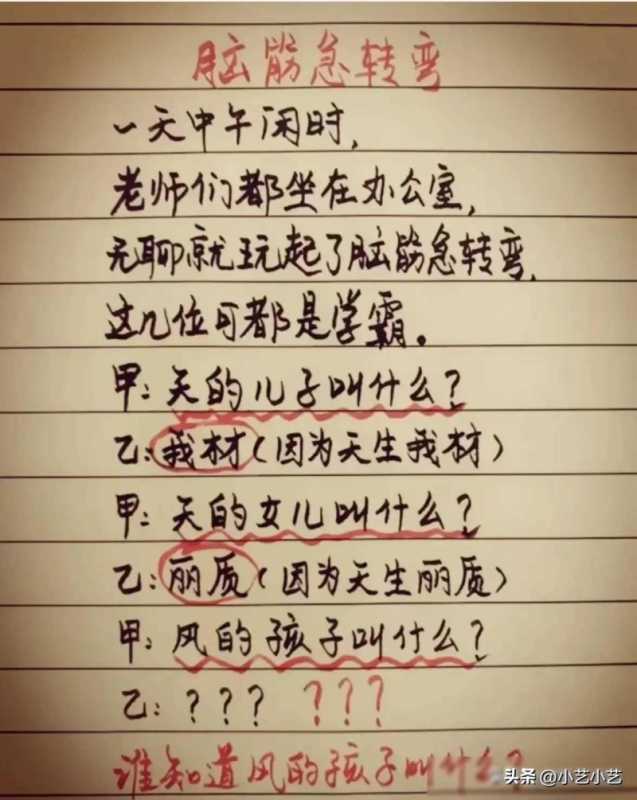 脑筋急转弯
一天中午闲时,
老师们都坐在办公室,
无聊就玩起了脑筋急转弯,
这几位可都是学霸。
甲:天的儿子叫什么?
乙:我材(因为天生我材)
甲:天的女儿叫什么?
乙:丽质(因为天生丽质)
甲:风的孩子叫什么?
乙:??? ???
谁知道风的孩子叫什么?
头条@小艺小艺